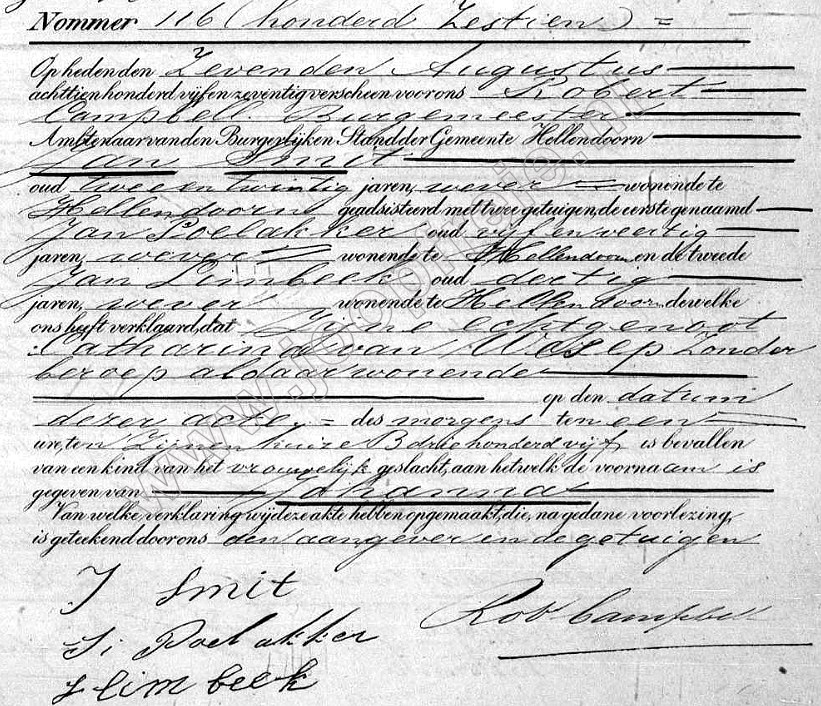 Nommer 116 (honderd Zestien) =
Op heden den Zevenden Augustus
achttienhonderd vijf en zeventig verscheen voor ons Robert
Campbell. Burgemeester
Ambtenaar van den Burgerlijken Stand der Gemeente Hellendoorn
Jan Smit
oud twee en twintig jaren, wever wonende te
Hellendoorn geadsisteerd met twee getuigen, de eerste genaamd
Jan Poelakker oud vijf en veertig
jaren, wever wonende te Hellendoorn en de tweede
Jan Limbeek oud dertig
jaren, wever wonende te Hellendoorn, dewelke
ons heeft verklaard, dat Zijne echtgenoot
Catharina van Wesep Zonder
beroep aldaar wonende
op den datum
dezer acte = des morgens ten een
ure, ten Zijnen huize B driehonderd vijf is bevallen
van een kind van het vrouwelijk geslacht, aan hetwelk de voornaam is
gegeven van Johanna
Van welke verklaring wij deze akte hebben opgemaakt, die, na gedane voorlezing,
is geteekend door ons den aangever en de getuigen
J Smit
Rob Campbell
J; Poelakker
J limbeek